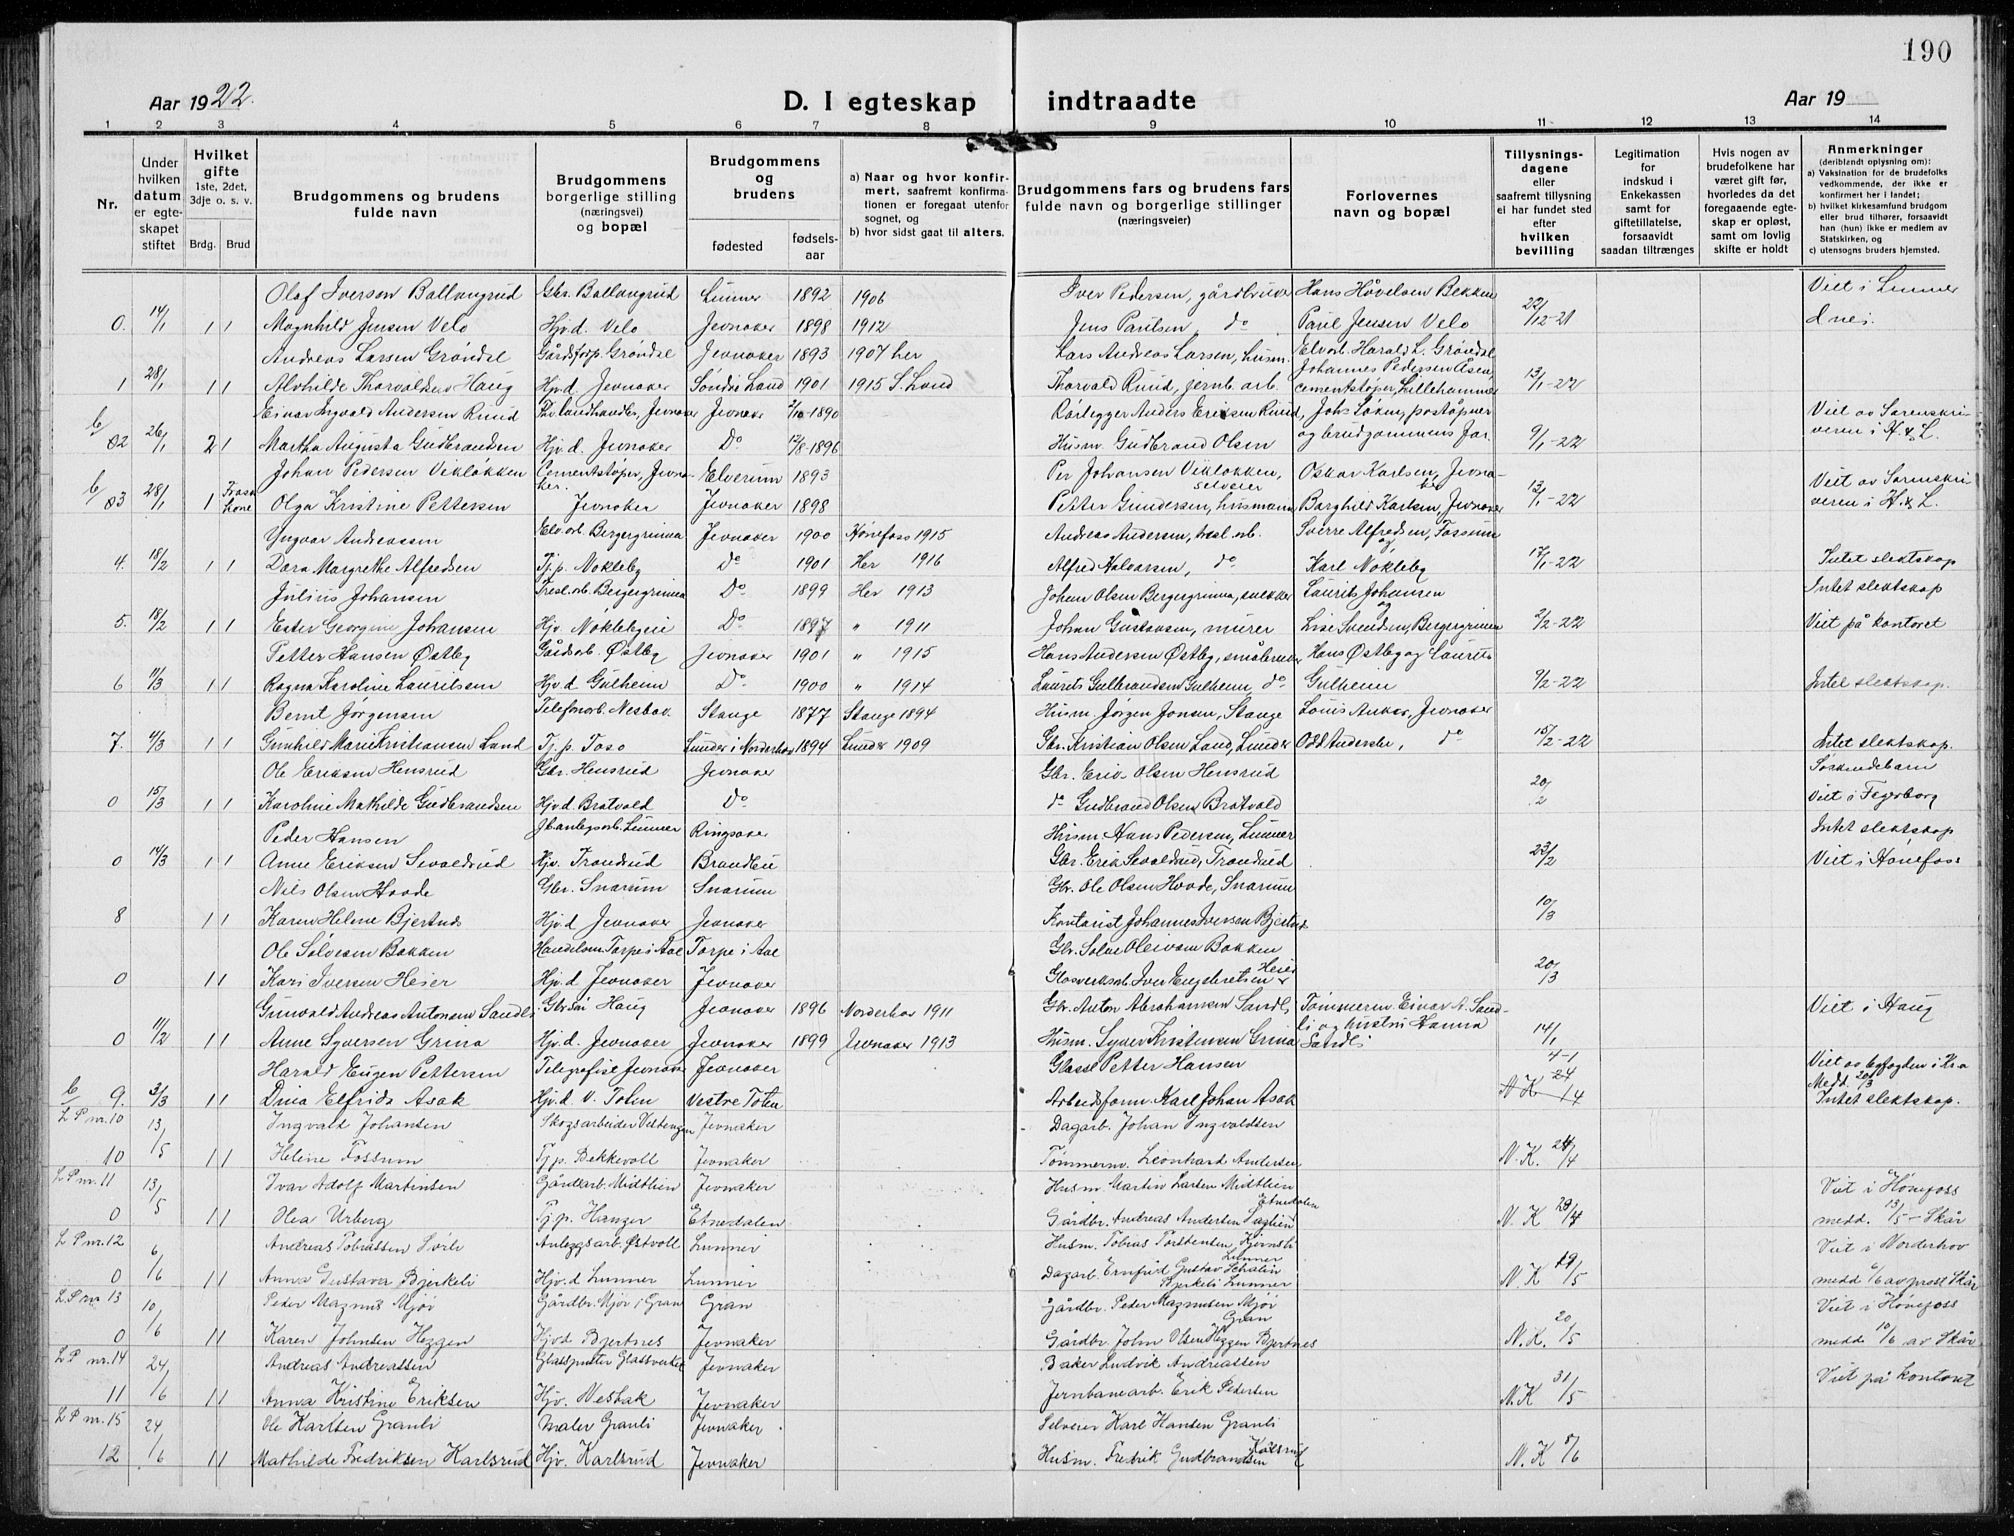 190
Aar 1922.
D. I egteskap indtraadte
Aar 19
1 2 3 4 5 6 7 8 9 10 11 12 13 14
Nr.
Under hvilken datum er egteskapet stiftet
Hvilket gifte 1ste, 2det, 3dje o. s. v.
Brdg. Brud
Brudgommens og brudens fulde navn
Brudgommens borgerlige stilling (næringsvei) og bopæl
Brudgommens og brudens
fødested fødselsaar
a) Naar og hvor konfirmert, saafremt konfirmationen er foregaat utenfor sognet, og
b) hvor sidst gaat til alters.
Brudgommens fars og brudens fars fulde navn og borgerlige stillinger (næringsveier)
Forlovernes navn og bopæl
Tillysningsdagene eller saafremt tillysning ei har fundet sted efter hvilken bevilling
Legitimation for indskud i Enkekassen samt for giftetillatelse, forsaavidt saadan tiltrænges
Hvis nogen av brudefolkene har været gift før, hvorledes da det foregaaende egteskap er opløst, samt om lovlig skifte er holdt
Anmerkninger (deriblandt oplysning om):
a) Vaksination for de brudefolks vedkommende, der ikke er konfirmert her i landet;
b) hvilket kirkesamfund brudgom eller brud tilhører, forsaavidt han (hun) ikke er medlem av Statskirken, og
c) utensogns bruders hjemsted.
Olaf Iversen Ballangrud Gbr. Ballangrud Lunner 1892 1906 Iver Pedersen, gårdbruker Hans Høvelsen Bekken Viet i Lunner
0. 14/1 1 1 Magnhild Jensen Velo Hjv.d. Velo Jevnaker 1898 1912 Jens Paulsen, do Paul Jensen Velo 22/12-21
Andreas Larsen Grøndal Gårdsforp. Grøndal Jevnaker 1893 1907 her Lars Andreas Larsen, husm. Elvarb. Harald L. Grøndal
1 28/1 1 1 Alvhilde Thorvaldsen Haug Hjv.d. Jevnaker Søndre Land 1901 1915 S. Land Thorvald Ruud, jernb. arb. Johannes Pedersen Åsen, cementstøper, Lillehammer 13/1-22
Einar Ingvald Andersen Ruud Fhv. landhandler, Jevnaker Jevnaker 2/10-1890 Rørlegger Anders Eriksen Ruud, Johs Løken, poståpner Viet av Sorenskri-
b/ 02 26/1 2 1 Martha Augusta Gudbrandsen Hjv. d. Jevnaker Do 12/8-1896 Husm. Gudbrand Olsen og brudgommens far. 9/1-22 veren i H. & L.
Johan Pedersen Vikløkken Cementstøper, Jevnaker. Elverum 1893 Per Johansen Vikløkken, selveier Oskar Karlsen, Jevnaker Viet av Sorenskri-
b/ 03 28/1 1 Fraskilt kone Olga Kristine Pettersen Jevnaker Jevnaker 1898 Petter Gundersen, husmann Borghild Karlsen, Jevnaker 13/1-22 veren i H. & L.
Yngvar Andreassen Elv.arb. Bergergrinna Jevnaker 1900 Hønefoss 1915 Andreas Andersen, tresl. arb. Sverre Alfredsen, Fossum og
4. 18/2 1 1 Dora Margrethe Alfredsen Tj.p. Nøkleby Do 1901 Her 1916 Alfred Halvorsen, do Karl Nøkleby 17/1-22 Intet slektskap
Julius Johansen Tresl.arb. Bergergrinna Do 1899 Her 1913 Johan Olsen Bergergrinna, snekker Laurits Johansen og Intet slektskap
5. 18/2 1 1 Ester Georgine Johansen Hjv. Nøklebyeie Do 1897 " 1911 Johan Gustavsen, murer Lise Svendsen, Bergergrinna 2/2-22 Viet på kontoret
Petter Hansen Østby Gårdsarb. Østby Jevnaker 1901 " 1915 Hans Andersen Østby, småbruker Hans Østby og Laurits
6 11/3 1 1 Ragna Karoline Lauritsen Hjv.d Gulheim Do 1900 " 1914 Laurits Gulbrandsen Gulheim, do Gulheim 9/2-22 Intet slektskap.
Bernt Jørgensen Telefonarb. Nesbak. Stange 1877 Stange 1894 Husm. Jørgen Jonsen, Stange Louis Anker, Jevnaker
7. 4/3 1 1 Gunhild Marie Kristiansen Land Tj. p. Foso Lunder i Norderhov 1894 Lunder 1909 Gbr. Kristian Olsen Land, Lunder Odd Anderske, do 15/2-22 Intet slektskap.
Ole Eriksen Hensrud Gbr. Hensrud Jevnaker Gbr. Erik Olsen Hensrud Søskendebarn
0 15/3 1 1 Karoline Mathilde Gudbrandsen Hjv.d Bratvold Do do Gudbrand Olsen Bratvold 20/2 Viet i Fagerborg
Peder Hansen Jb.anlegsarb. Lunner Ringsaker Husm. Hans Pedersen, Lunner Intet slektskap
0 14/3 1 1 Anne Eriksen Sevaldrud Hjv. Trondrud Brandbu Gbr. Erik Sevaldrud, Trondrud 23/2 Viet i Hønefoss
Nils Olsen Hovde Gbr. Snarum Snarum Gbr. Ole Olsen Hovde, Snarum
8 1 1 Karen Helene Bjertnes Hjv.d Jevnaker Jevnaker Kontorist Johannes Iversen Bjertnes 10/3
Ole Solvesen Bakken Handelsm. Torpe i Aal Torpe i Aal Gbr. Solve Oleivsen Bakken
0 1 1 Kari Iversen Heier Hjv.d Jevnaker Jevnaker Glasverksarb. Iver Engebretsen Heier 20/3
Gunvald Andreas Antonsen Sandli Gbr.søn Haug Jevnaker 1896 Norderhov 1911 Gbr. Anton Abrahamsen Sandli, Tømmerm Einar A. Sand- Viet i Haug
0 11/2 1 1 Anne Syversen Grina Hjv.d. Jevnaker Jevnaker 1899 Jevnaker 1913 Husm. Syver Kristensen Grina li og hustru Hanna Sandli 14/1
Harald Eugen Pettersen Telegrafist Jevnaker Jevnaker Glassl Petter Hansen 4-1 Viet av byfogden i Kra
b/ 9. 3/3 1 1 Dina Elfrida Asak Hjv.d V. Toten Vestre Toten Arbeidsform. Karl Johan Asak N K 24/14 Medd. 20/3 Intet slektskap.
L P nr. 10 Ingvald Johansen Skogsarbeider Vestengen Jevnaker Dagarb. Johan Ingvaldsen
10 13/5 1 1 Helene Fossum Tj.p. Bekkevoll Jevnaker Tømmerm. Leonhard Andersen N. K. 24/4
L P nr. 11 Ivar Adolf Martinsen Gårdsarb. Midtlien Jevnaker Husm. Martin Larsen Midtlien Viet i Hønefoss
0 13/5 1 1 Olea Urberg Tj.p. Hanger Etnedalen Gårdbr. Andreas Andersen Etnedalen N. K 23/4 medd. 13/5 - Skår
L P nr. 12 Andreas Tobiassen Anleggsarb. Østvoll Lunner Husm. Tobias Torstensen Lunner Viet i Norderhov
0 6/6 1 1 Anna Gustava Bjerkeli Hjv.d Lunner Lunner Dagarb. Ernfrid Gustav Schalin Bjerkeli Lunner N. K 19/5 medd 6/6 av prost Skår
L P nr 13 Peder Magnus Mjør Gårdbr. Mjør i Gran Gran Gårdbr. Peder Magnusen Mjør Gran Viet i Hønefoss
0 10/6 1 1 Karen Johnsen Heggen Hjv.d Bjertnes Jevnaker Gårdbr. John Olsen Heggen Bjertnes N. K. 20/5 medd 10/6 av Skår
L P nr. 14 Andreas Andreassen Glasspuster Glassverket Jevnaker Baker Ludvik Andreassen Viet på kontoret
11 24/6 1 1 Anna Kristine Eriksen Hjv. Nesbak Jevnaker Jernbanearb. Erik Pedersen N. K 31/5
L P nr. 15 Ole Karlsen Granli Maler Granli Jevnaker Selveier Karl Hansen Granli
12 24/6 1 1 Mathilde Fredriksen Karlsrud Hjv. Karlsrud Jevnaker Husm. Fredrik Gudbrandsen Karlsrud N. K 8/6